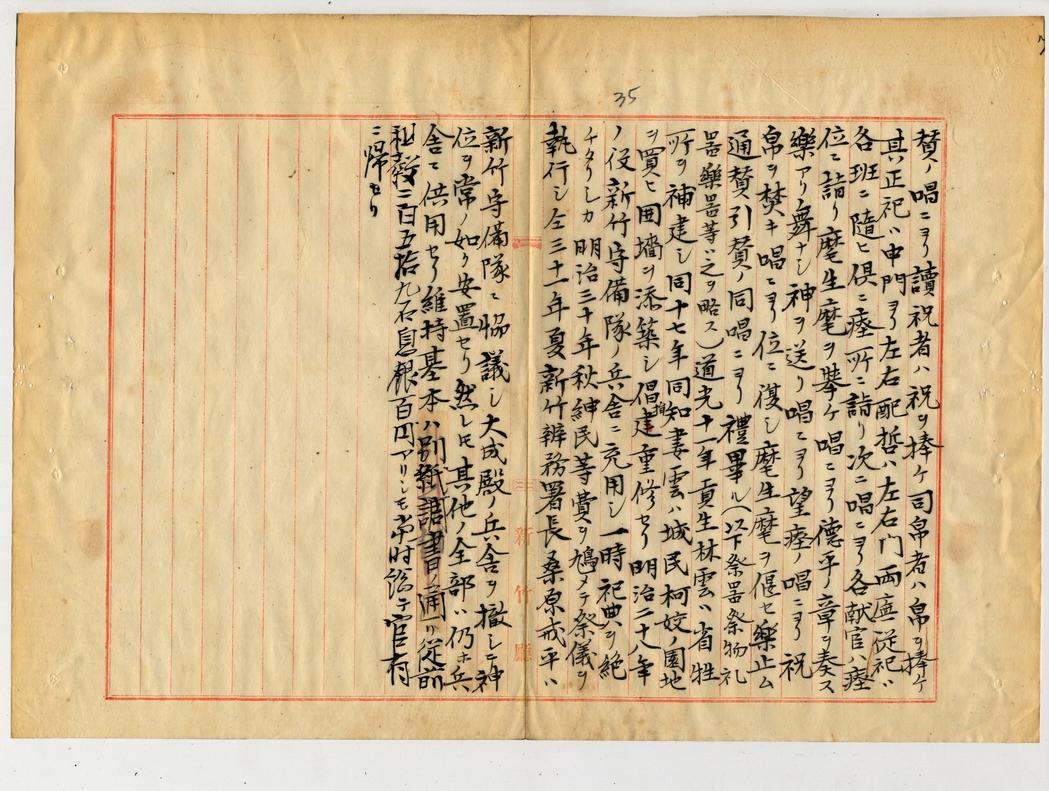 35
贊ノ唱ニヨリ讀祝者ハ祝ヲ捧ケ司帛者ハ帛ヲ捧ケ
其正祀ハ中門ヨリ左右配哲ハ左右門兩廡從祀ハ
各班ニ隨ヒ倶ニ瘞所ニ詣リ次ニ唱ニヨリ各献官ハ瘞
位ニ詣リ麾生麾ヲ擧ケ唱ニヨリ德平ノ章ヲ奏ス
樂アリ舞ナシ神ヲ送リ唱ニヨリ望瘞ノ唱ニヨリ祝
帛ヲ焚キ唱ニヨリ位ニ復シ麾生麾ヲ偃セ樂止ム
通贊引贊ノ同唱ニヨリ禮畢ル(以下祭器祭物礼
器樂器等ハ之ヲ略ス)道光十一年貢生林雲ハ省牲
所ヲ補建シ同十七年同知婁雲ハ城民柯姣ノ園地
ヲ買ヒ囲墻ヲ添築シ倡捐建重修セリ明治二十八年
ノ役新竹守備隊ノ兵舎ニ充用シ一時祀典ヲ絶
チタリシカ明治三十年秋紳民等貲ヲ鳩メテ祭儀ヲ
執行シ仝三十一年夏新竹辨務署長桑原戒平ハ
新竹守備隊ニ協議シ大成殿ノ兵舎ヲ撤シ神
位ヲ常ノ如ク安置セリ然レモ其他ノ全部ハ仍ホ兵
舎ニ供用セリ維持基本ハ別紙諸書通リ従前
租穀二百五拾九石息銀百円アリシモ當時総テ官有
ニ帰セリ
新竹廳